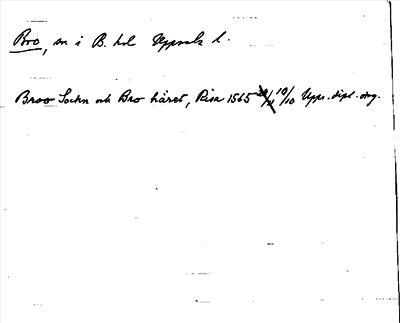 Bro, sn i B. hd Uppsala l.
Broo Sockn och Bro häret, Risa 1565 10/10 Upps. dipl. orig.